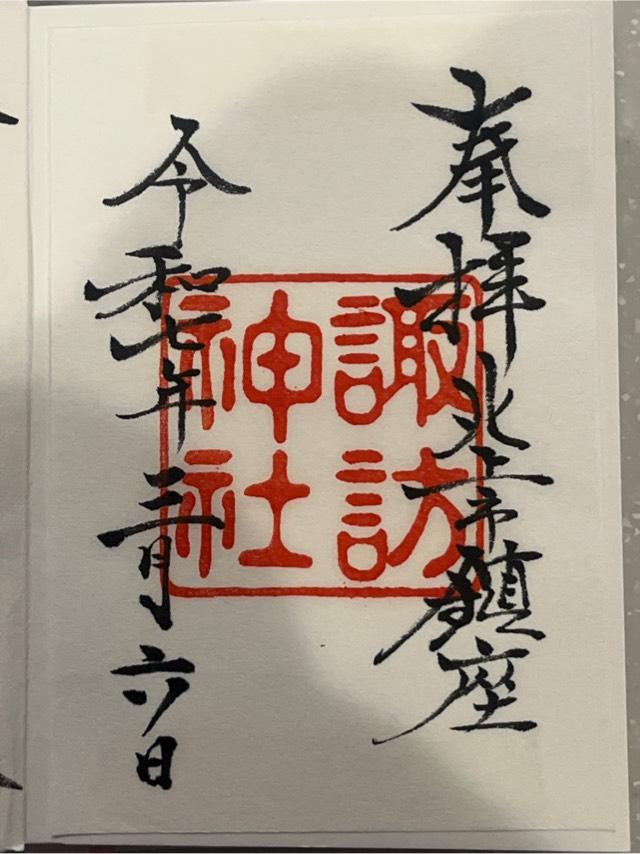 奉拝 北上市鎮座
諏訪
神社
令和七年三月六日